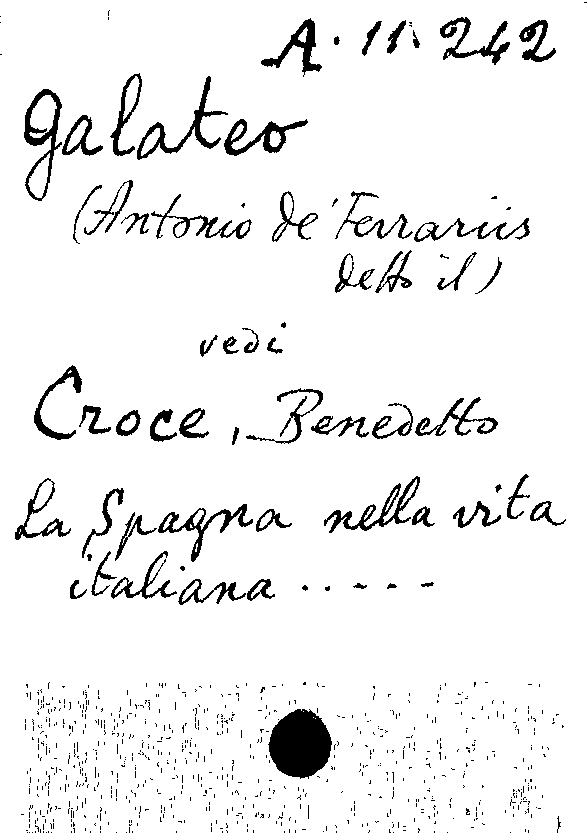 A. 11. 242
Galateo
(Antonio de' Ferrariis
detto il)
vedi
Croce, Benedetto
La Spagna nella vita
italiana . . - - -